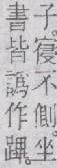 子。寢不側。坐
書皆譌作蹕